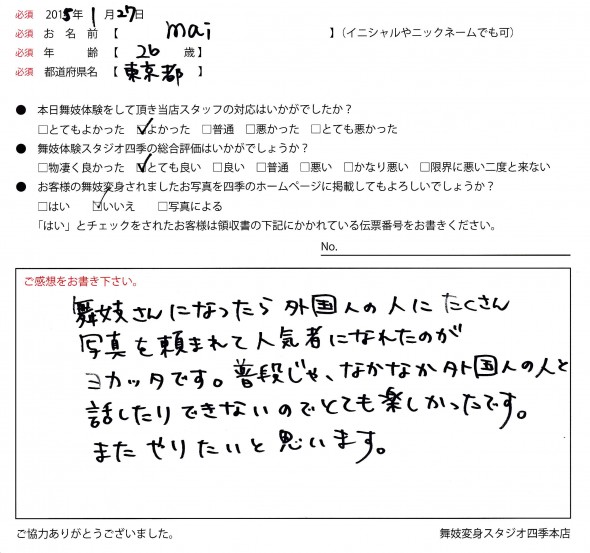 必須 2015年 1月 27日
必須 お名前【 mai 】（イニシャルやニックネームでも可）
必須 年齢【 26 歳】
必須 都道府県名【 東京都 】
● 本日舞妓体験をして頂き当店スタッフの対応はいかがでしたか？
□とてもよかった ☑よかった □普通 □悪かった □とても悪かった
● 舞妓体験スタジオ四季の総合評価はいかがでしょうか？
□物凄く良かった ☑とても良い □良い □普通 □悪い □かなり悪い □限界に悪い二度と来ない
● お客様の舞妓変身されましたお写真を四季のホームページに掲載してもよろしいでしょうか？
□はい ☑いいえ □写真による
「はい」とチェックをされたお客様は領収書の下記にかかれている伝票番号をお書きください。
No.
ご感想をお書き下さい。
舞妓さんになったら外国人の人にたくさん
写真を頼まれて人気者になれたのが
ヨカッタです。普段じゃ、なかなか外国人の人と
話したりできないのでとても楽しかったです。
またやりたいと思います。
ご協力ありがとうございました。
舞妓変身スタジオ四季本店